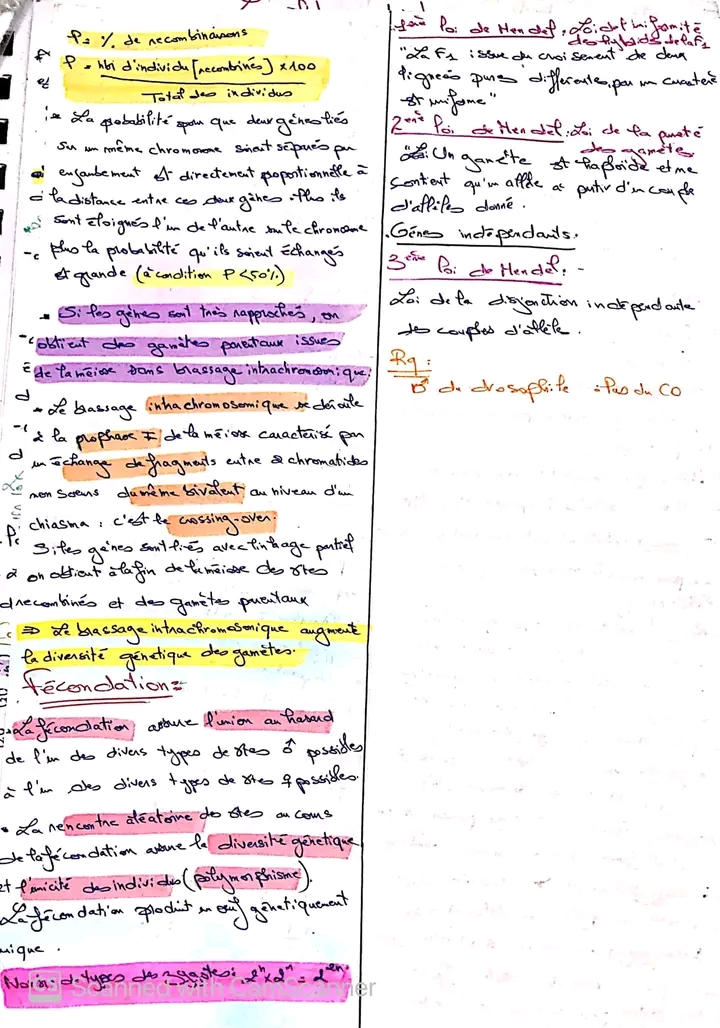 P = % de recombinaisons
P = nbr d'individu [recombinés] x 100
Total des individus
La probabilité pour que deux gènes liés
sur un même chromosome soient séparés par
enjambement est directement proportionnelle à
la distance entre ces deux gènes. Plus ils
sont éloignés l'un de l'autre sur le chromosome
plus la probabilité qu'ils soient échangés
est grande (à condition P < 50%)
Si les gènes sont très rapprochés, on
obtient des gamètes parentaux issues
de la méiose sans brassage intrachromosomique.
Le brassage intrachromosomique se déroule
à la prophase I de la méiose caractérisé par
un échange de fragments entre 2 chromatides
non soeurs du même bivalent au niveau d'un
chiasma : c'est le crossing-over.
Si les gènes sont liés avec linkage partiel
on obtient à la fin de la méiose des γtes
recombinés et des gamètes parentaux
⇒ Le brassage intrachromosomique augmente
la diversité génétique des gamètes.
Fécondation :
La fécondation assure l'union au hasard
de l'un des divers types de γtes ♂ possibles
à l'un des divers types de γtes ♀ possibles.
La rencontre aléatoire des γtes au cours
de la fécondation assure la diversité génétique
et l'unicité des individus (polymorphisme).
La fécondation produit un œuf génétiquement
unique.
types des zygotes : 2ⁿ x 2ⁿ = 2²ⁿ
Scanned with CamScanner
1ère loi de Mendel : Loi de l'uniformité
des hybrides de la F1
"La F1 issue du croisement de deux
lignées pures différentes par un caractère
est uniforme"
2ème loi de Mendel : Loi de la pureté
des gamètes
Un gamète est haploïde et ne
contient qu'un allèle à partir d'un couple
d'allèles donné.
Gènes indépendants.
3ème loi de Mendel : -
Loi de la disjonction indépendante
des couples d'allèle.
Rq :
♂ du drosophile : Pas du CO